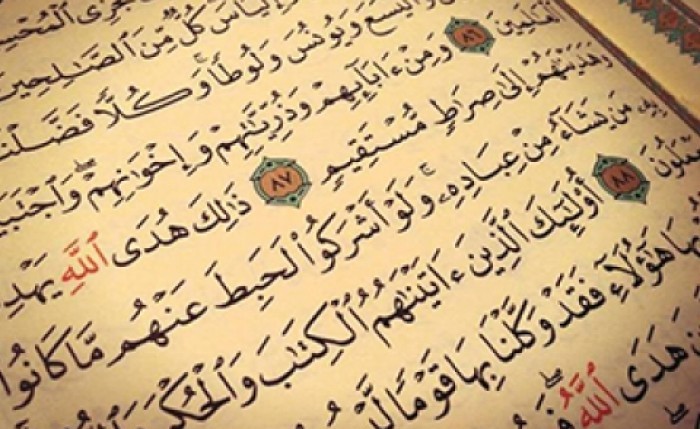 ٱلْمُحْسِ
وَإِلْيَاسَ كُلٌّ مِّنَ ٱلصَّٰلِحِينَ
وَٱلْيَسَعَ وَيُونُسَ وَلُوطًا ۚ وَكُلًّا فَضَّلْنَا
ٱلْعَٰلَمِينَ ٨٦ وَمِنْ ءَابَآئِهِمْ وَذُرِّيَّٰتِهِمْ وَإِخْوَٰنِهِمْ ۖ وَٱجْتَبَيْ
وَهَدَيْنَٰهُمْ إِلَىٰ صِرَٰطٍ مُّسْتَقِيمٍ ٨٧ ذَٰلِكَ هُدَى ٱللَّهِ يَهْدِ
مَن يَشَآءُ مِنْ عِبَادِهِۦ ۚ وَلَوْ أَشْرَكُوا۟ لَحَبِطَ عَنْهُم مَّا كَانُوا۟
يَعْمَلُونَ ٨٨ أُو۟لَٰٓئِكَ ٱلَّذِينَ ءَاتَيْنَٰهُمُ ٱلْكِتَٰبَ وَٱلْحُكْمَ
بِهَا هَٰٓؤُلَآءِ فَقَدْ وَكَّلْنَا بِهَا قَوْمًا
هَدَى ٱللَّهُ ۖ